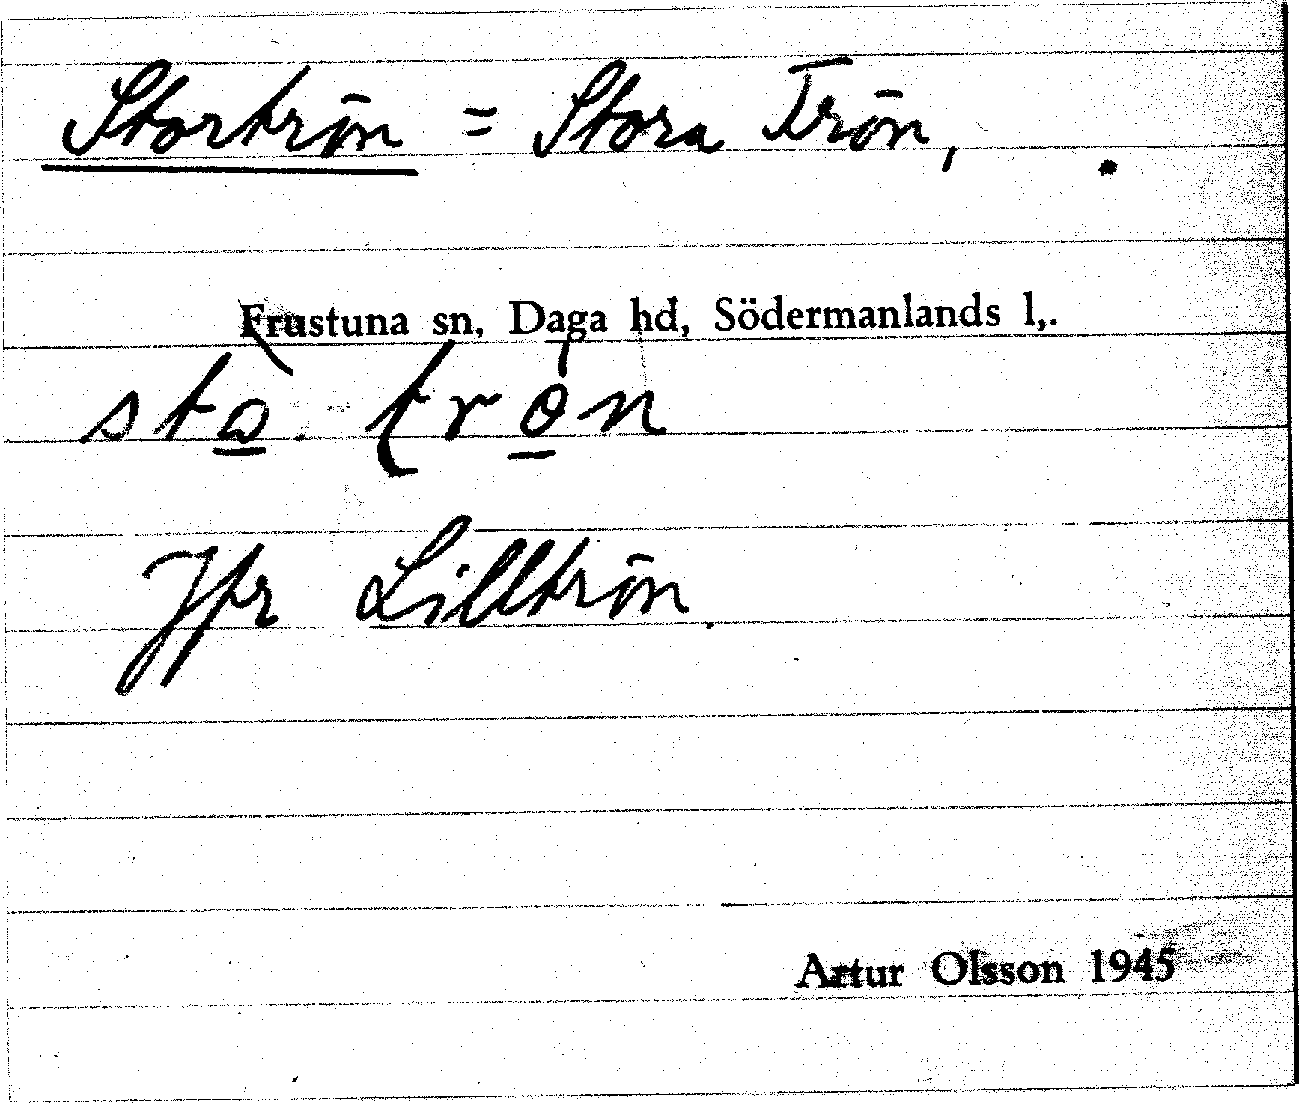 Stortrön = Stora Trön, .
Frustuna sn, Daga hd, Södermanlands l,.
Jfr Lilltrön.
Artur Olsson 1945